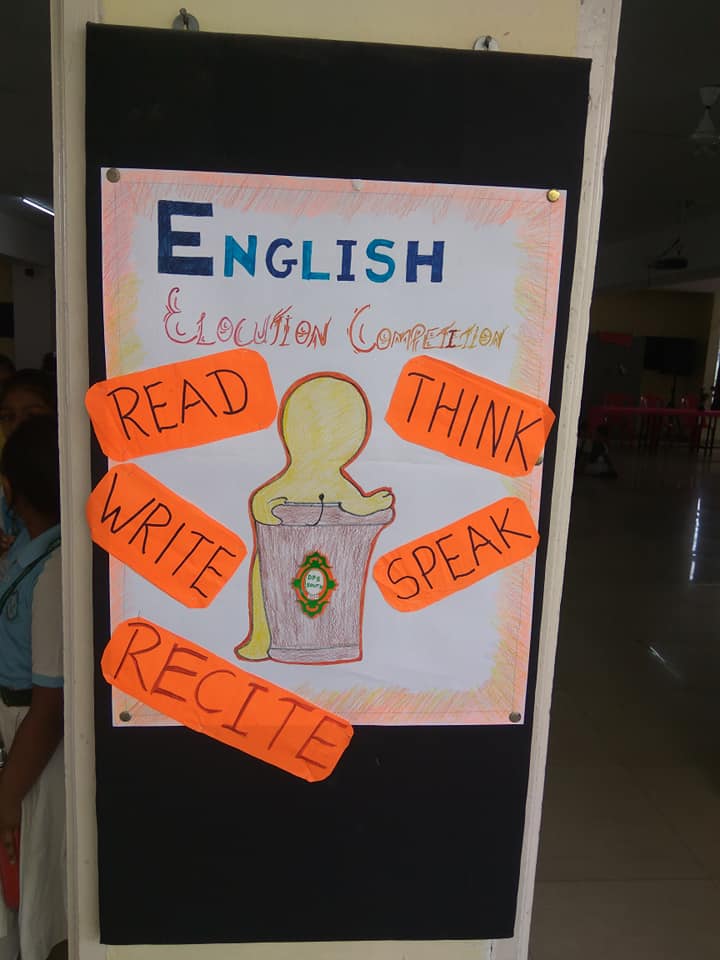 ENGLISH
ELOCUTION COMPETITION
READ
THINK
WRITE
SPEAK
DPS
SOUTH
RECITE